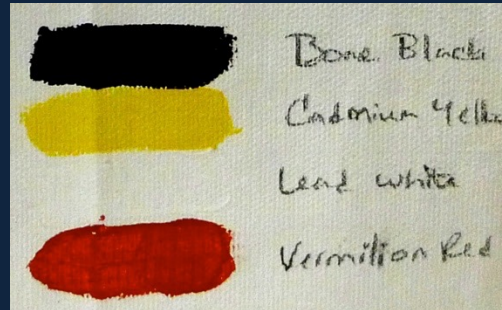 Bone Black
Cadmium Yello
Lead white
Vermilion Red